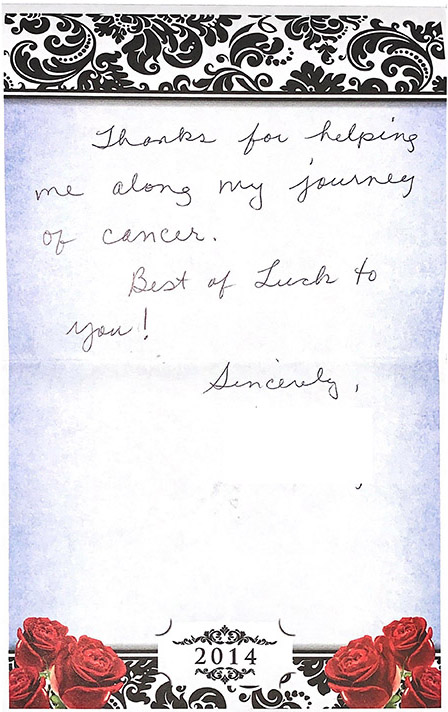 Thanks for helping
me along my journey
of cancer.
Best of Luck to
you!
Sincerely,
2014